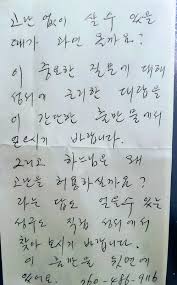 고난 없이 살 수 있을
때가 과연 올까요?
이 중요한 질문에 대해
성서에 근거한 대답을
이 간단한 출판물에서
보시기 바랍니다.
그리고 하느님은 왜
고난을 허용하실까요?
라는 답도 얻을 수 있는
성구도 직접 성서에서
찾아보시기 바랍니다.
이 출판물 뒷면에
있어요. 260-486-9116